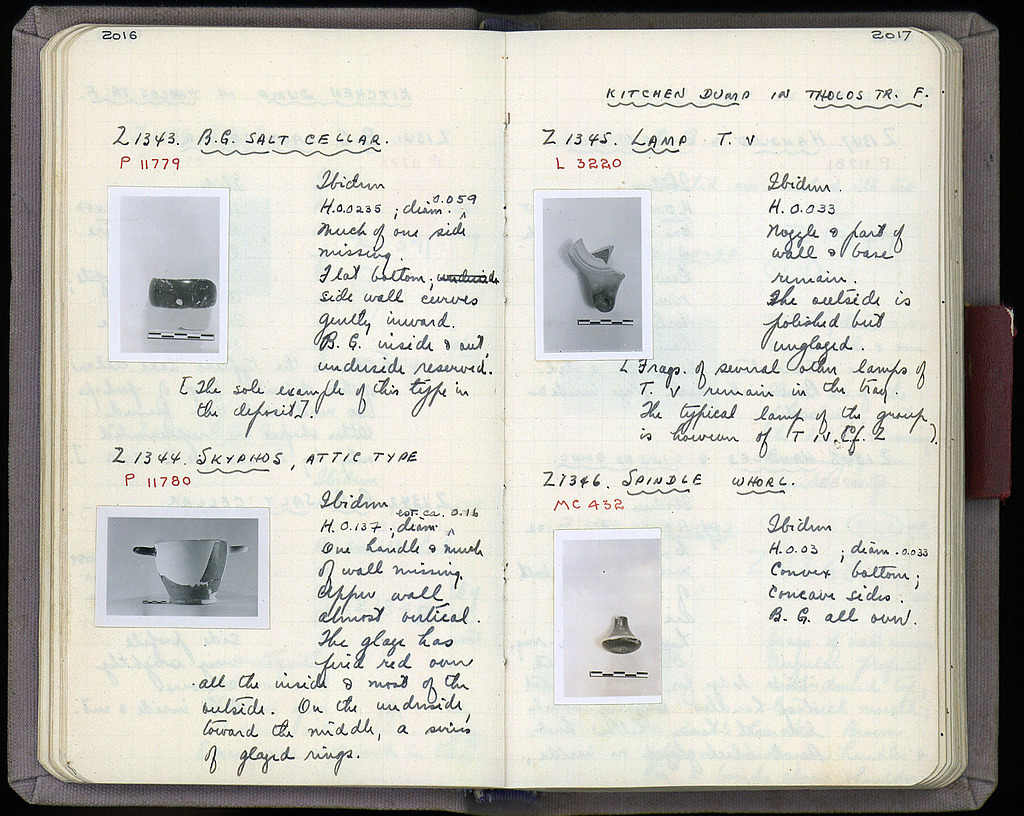 2016
Z 1343. B.G. SALT CELLAR.
P 11779
Ibidum
H. 0.0235 ; diam. 0.059
Much of one side
missing.
Flat bottom;
side wall curves
gently inward.
B. G. inside & out,
underside reserved.
[The sole example of this type in
the deposit].
Z 1344. SKYPHOS, ATTIC TYPE
P 11780
Ibidum
H. 0.137, est. ca. 0.16 diam
One handle & much
of wall missing.
Upper wall
almost vertical.
The glaze has
fired red over
all the inside & most of the
outside. On the underside,
toward the middle, a series
of glazed rings.
2017
KITCHEN DUMP IN THOLOS TR. F.
Z 1345. LAMP T. V
L 3220
Ibidum.
H. 0.033
Nozzle & part of
wall & base
remain.
The outside is
polished but
unglazed.
[Frags. of several other lamps of
T. V remain in the tray.
The typical lamp of the group
is however of T IV. Cf. Z ].
Z 1346. SPINDLE WHORL.
MC 432
Ibidum
H. 0.03 ; diam. 0.033
Convex bottom;
concave sides.
B. G. all over.